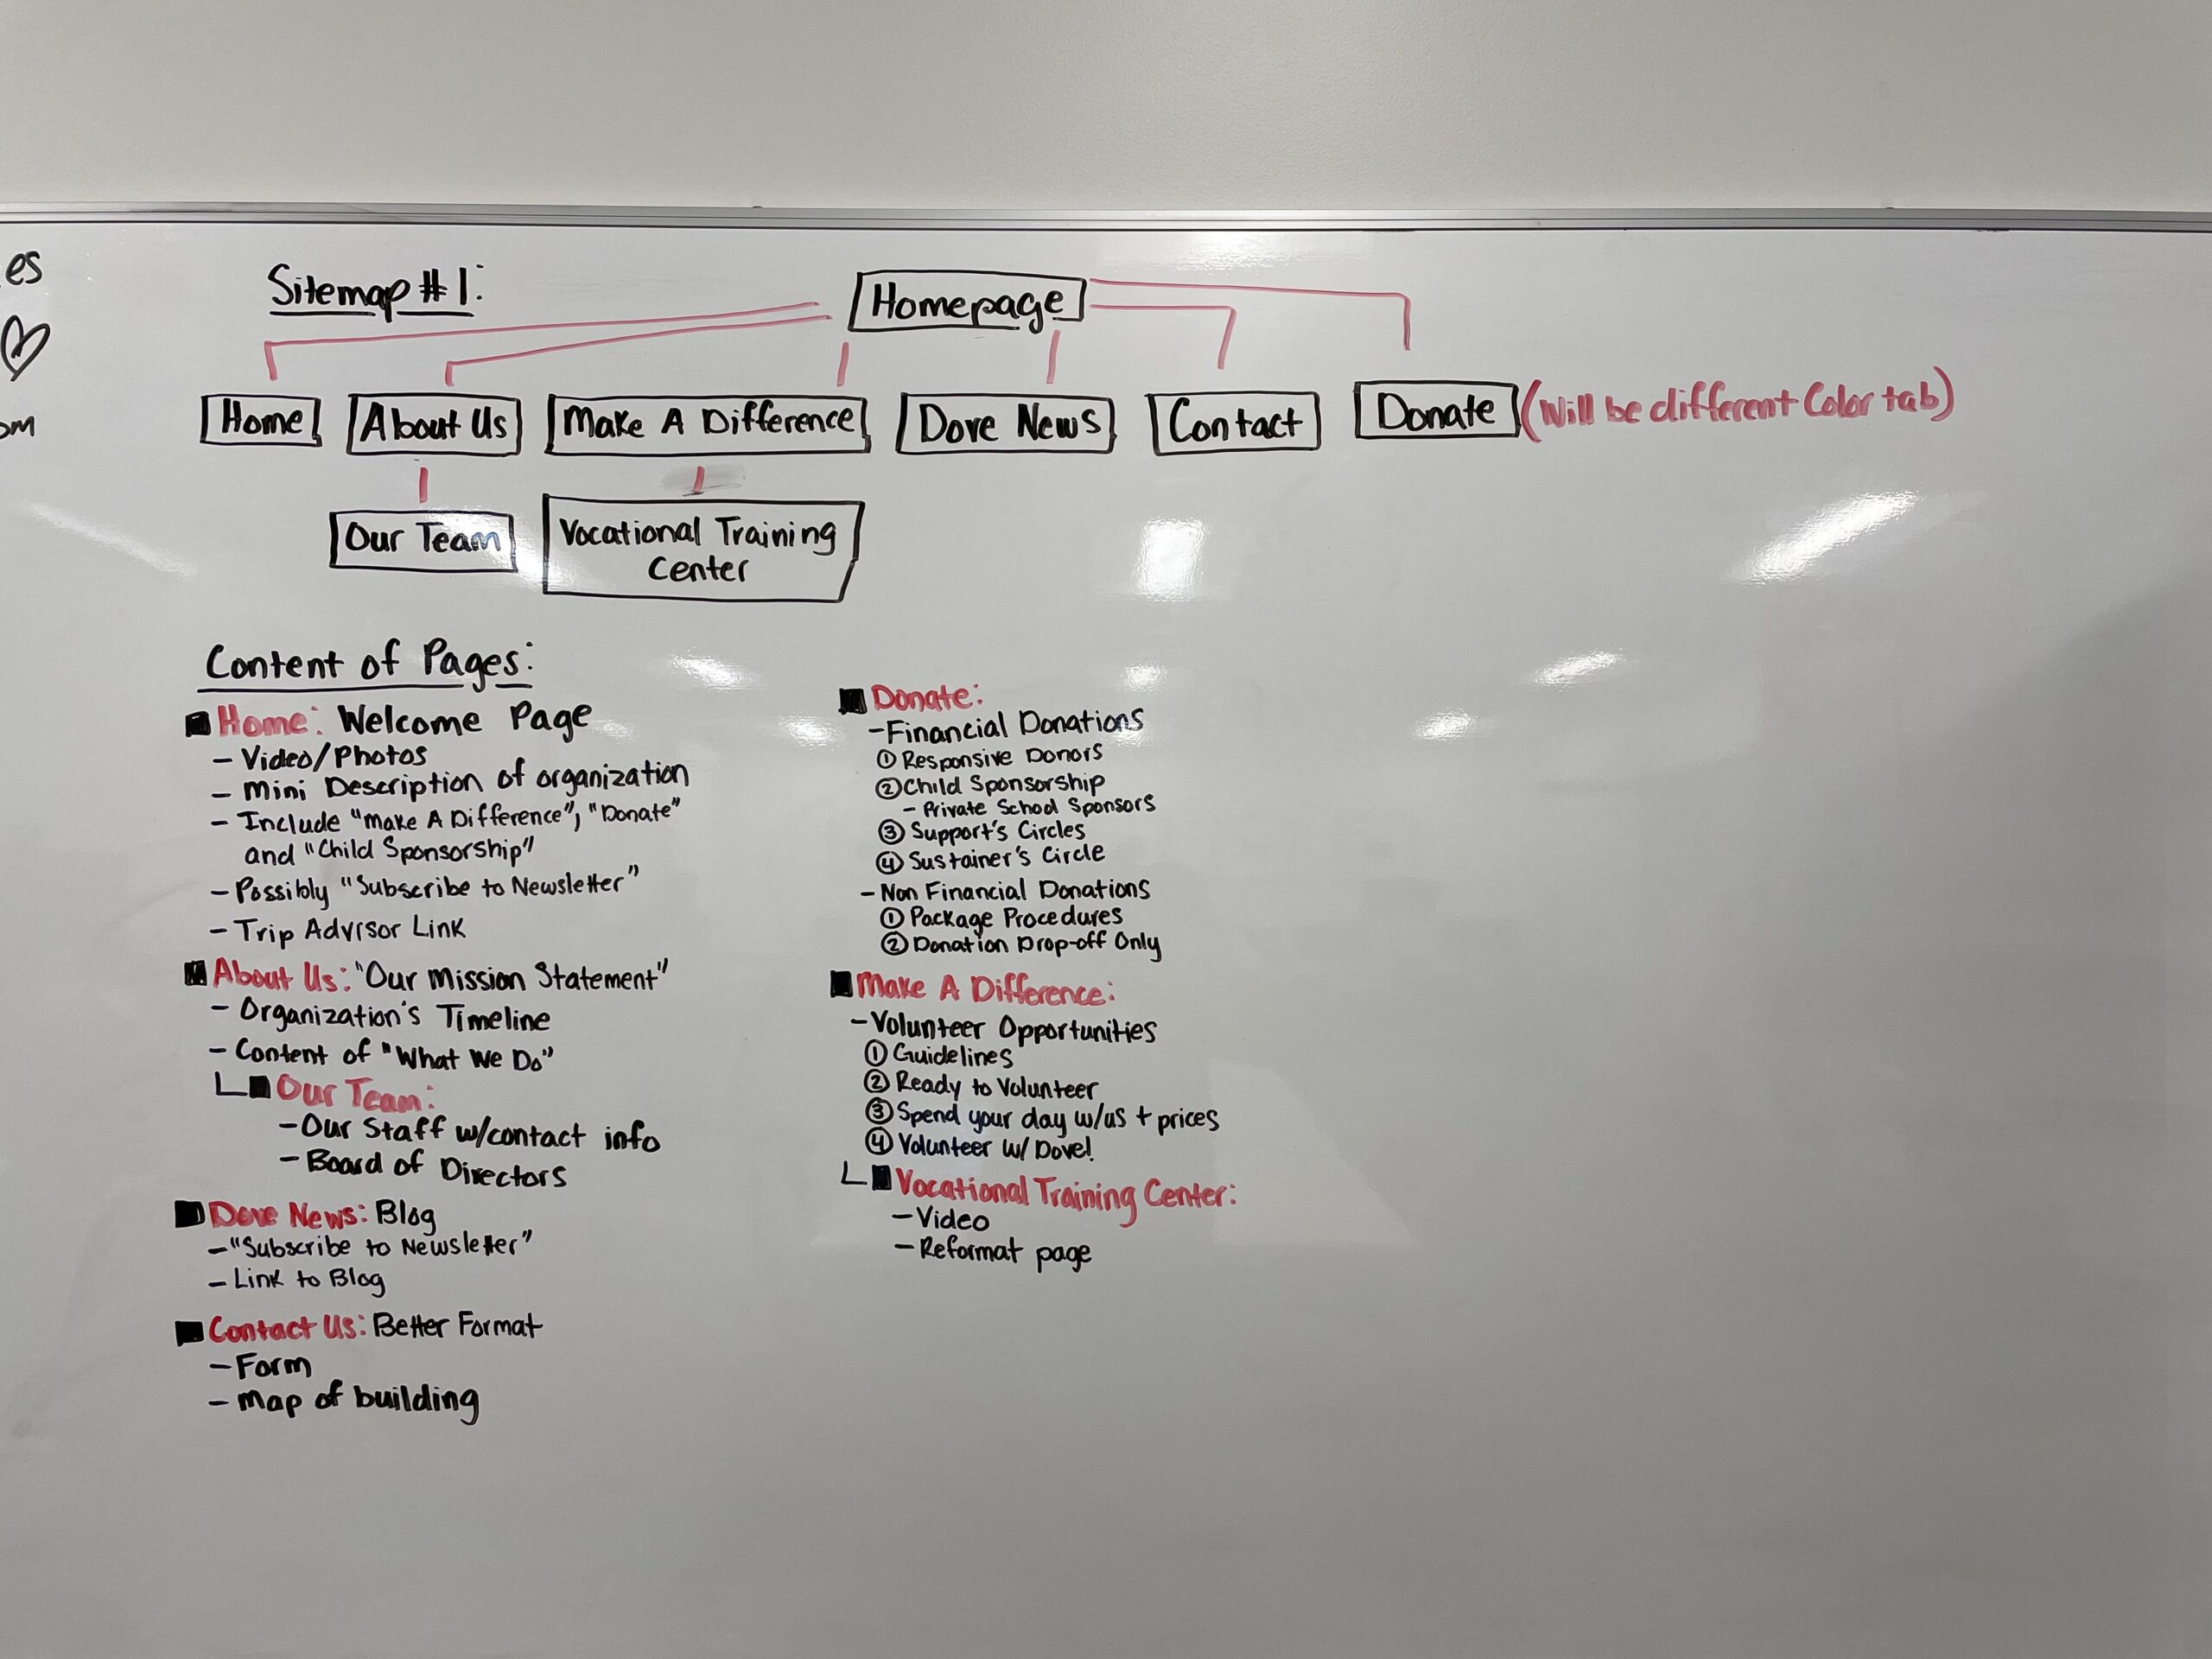 es
om
Sitemap #1:
Homepage
Home
About Us
Make A Difference
Dove News
Contact
Donate (Will be different Color tab)
Our Team
Vocational Training
Center
Content of Pages:
Home: Welcome Page
- Video/Photos
- Mini Description of organization
- Include "Make A Difference", "Donate"
and "Child Sponsorship"
- Possibly "Subscribe to Newsletter"
- Trip Advisor Link
About Us: "Our Mission Statement"
- Organization's Timeline
- Content of "What We Do"
Our Team:
- Our Staff w/contact info
- Board of Directors
Dove News: Blog
- "Subscribe to Newsletter"
- Link to Blog
Contact Us: Better Format
- Form
- Map of building
Donate:
- Financial Donations
① Responsive Donors
② Child Sponsorship
- Private School Sponsors
③ Support's Circles
④ Sustainer's Circle
- Non Financial Donations
① Package Procedures
② Donation Drop-off Only
Make A Difference:
- Volunteer Opportunities
① Guidelines
② Ready to Volunteer
③ Spend your day w/us + prices
④ Volunteer w/ Dove!
Vocational Training Center:
- Video
- Reformat page